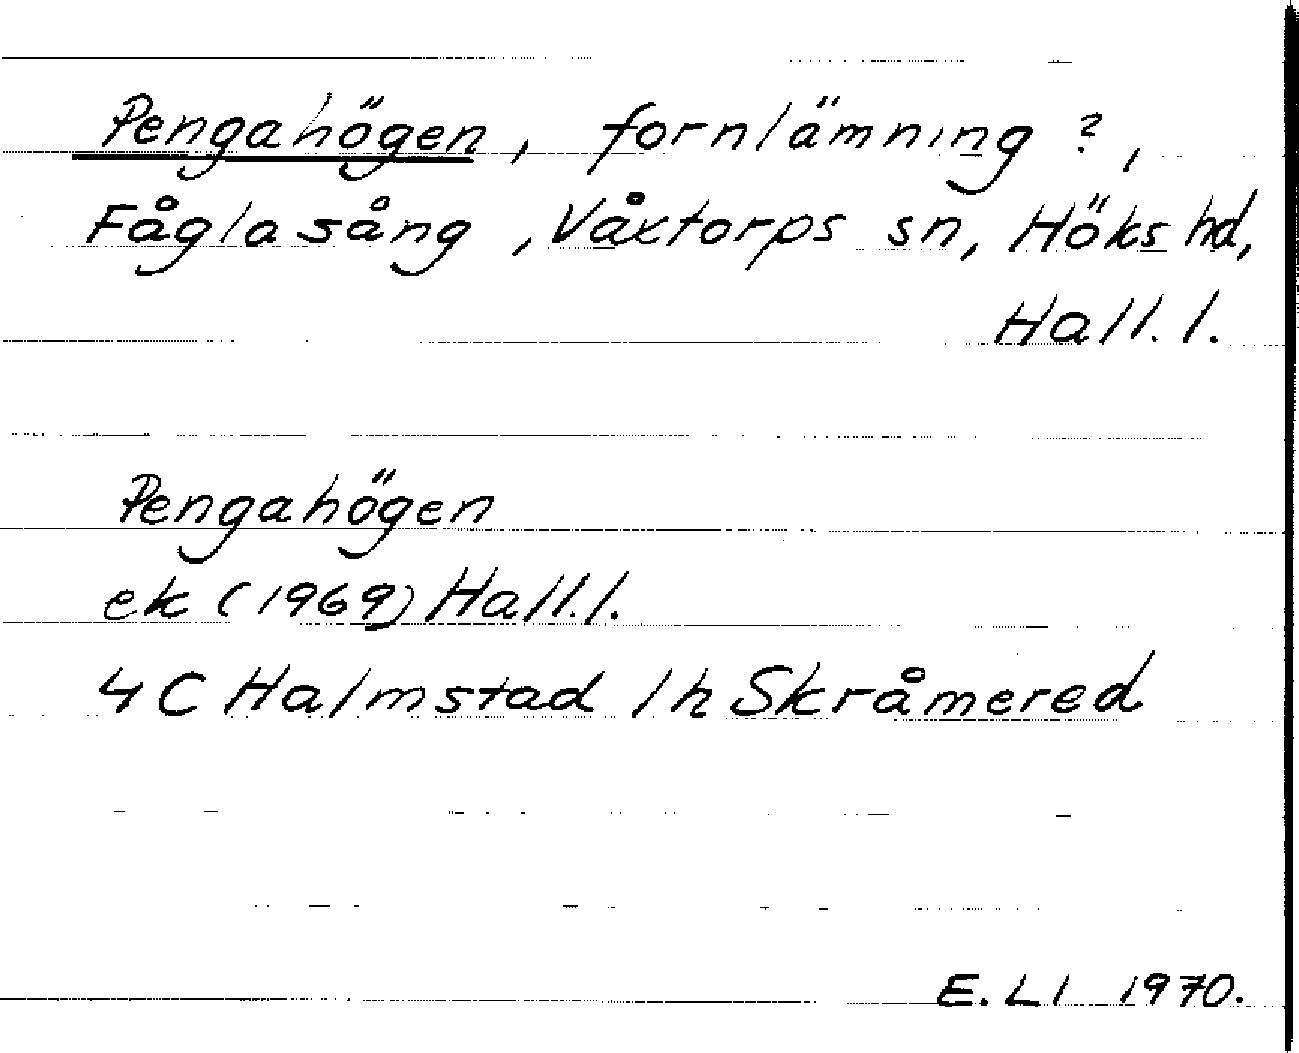 Pengahögen, fornlämning ?,
Fåglasång, Våxtorps sn, Höks hd,
Hall. l.
Pengahögen
ek (1969) Hall. l.
4 C Halmstad 1 h Skråmered
E. L l 1970.